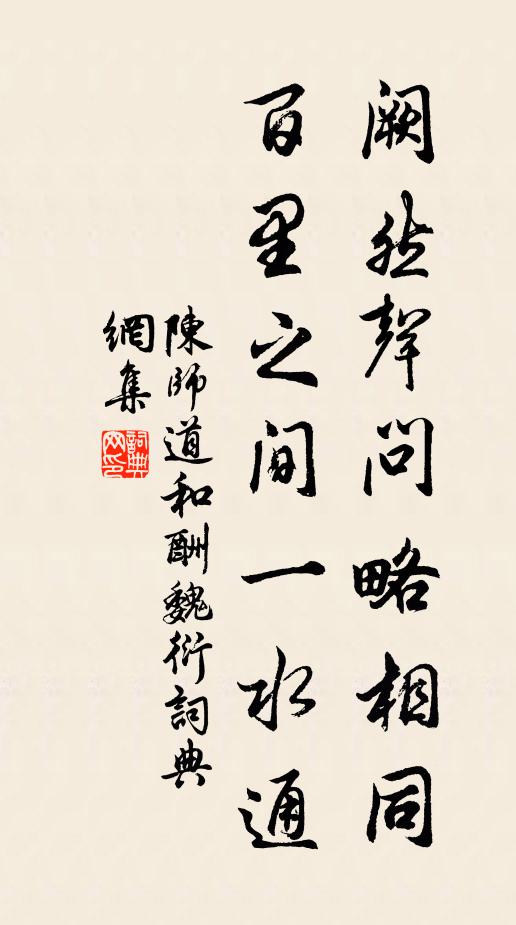 闕然聲問略相同
百里之間一水通
陳師道和酬魏衍詞典
網集
詞典網印